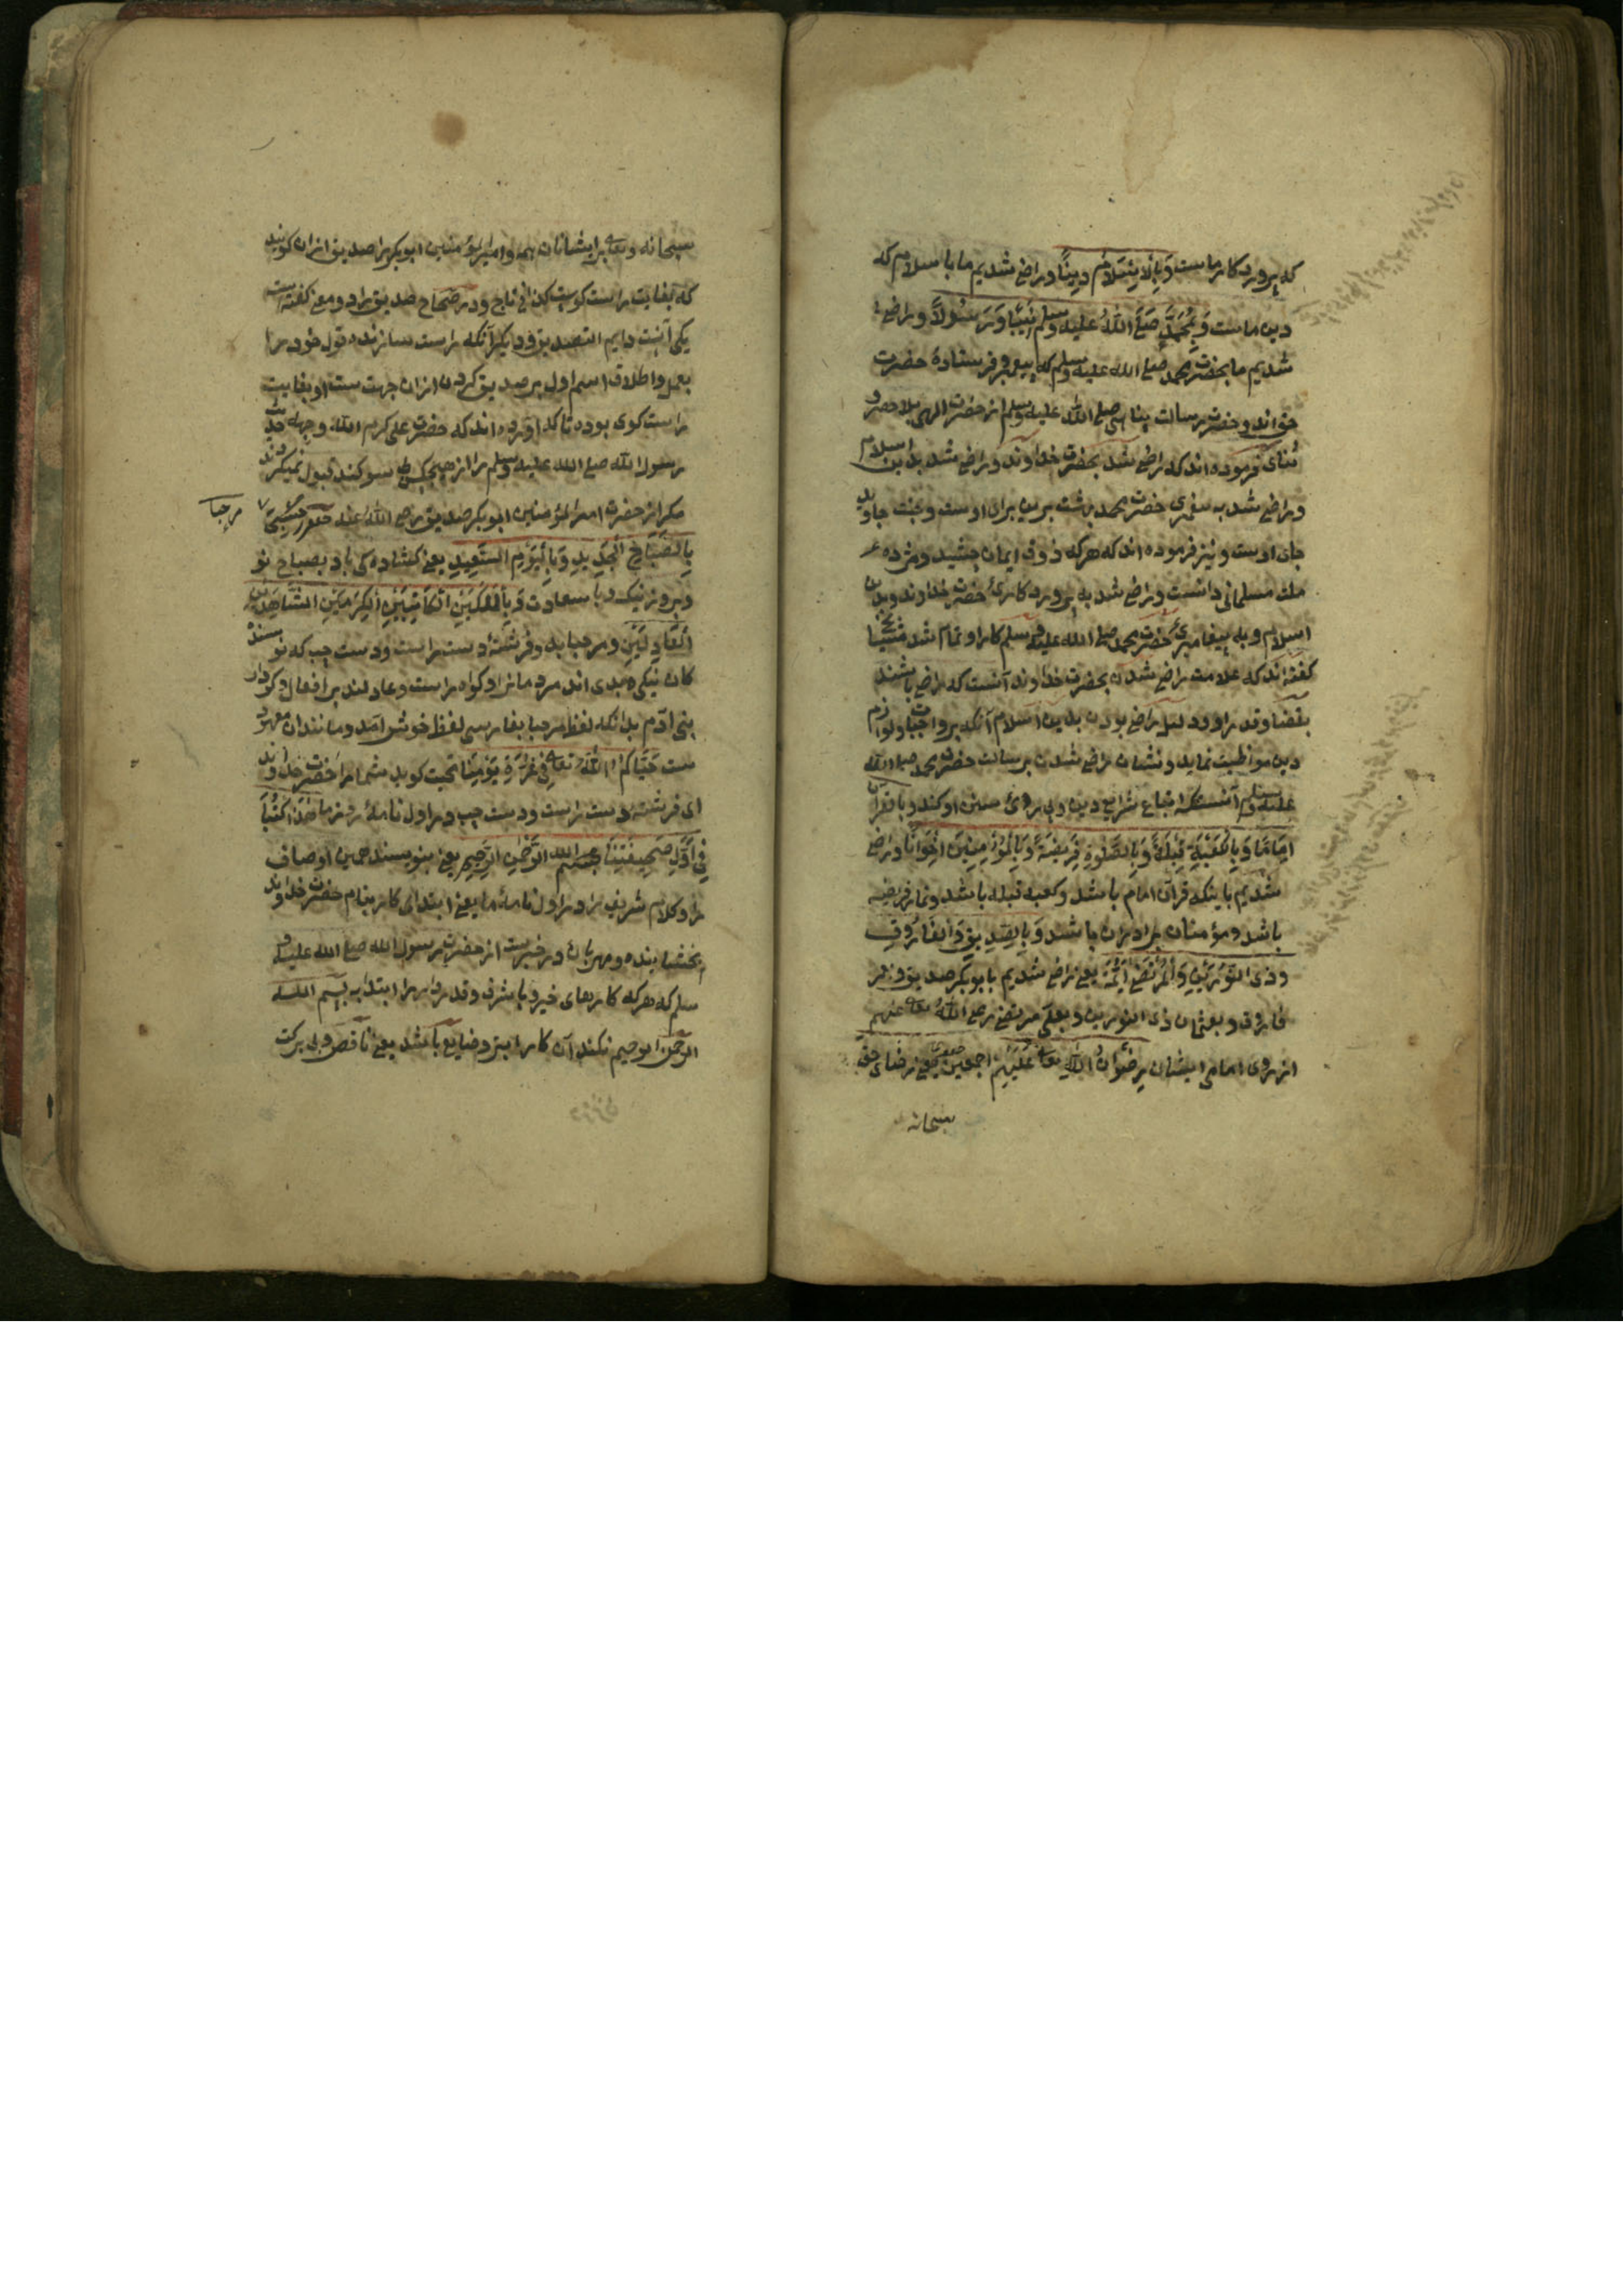 که پروردکار ماست وَبِالْاِسْلَامِ دِينًا و راضی شدیم ما با سلام که
دین ماست وَبِمُحَمَّدٍ صَلَّی اللّٰهُ علیه وسلم نَبِیًّا وَرَسُولًا و راضی
شدیم ما بحضرت محمد صلی الله علیه وسلم که پیغمبر و فرستادهٔ حضرت
حق اند و حضرت رسالت پناهی صلی الله علیه وسلم از حضرت الهی
فرموده اند که راضی شد بحضرت خداوند و راضی شد بدین اسلام
و راضی شد به پیغمبری حضرت محمد بهشت برین برای اوست و جنت جاوید
جای اوست و نیز فرموده اند که هرکه ذوق ایمان چشید و مزده
ملت مسلمانی دانست و راضی شد به پروردکارئ حضرت خداوند و بدین
اسلام و به پیغامبرئ حضرت محمد صلی الله علیه وسلم کار او تمام شد مشایخ
کفته اند که علامت راضی شدن بحضرت خداوند آنست که راضی باشند
بقضا و قدر او و دلیل راضی بودن بدین اسلام آنکه بر واجبات و لوازم
دین مواظبت نماید و نشان راضی شدن برسالت حضرت محمد صلی الله
علیه وسلم آنستکه اتباع شرایع دین و پی روئ سنن او کند و بالقرآن
اِمَامًا وَبِالْکَعْبَةِ قِبْلَةً وَبِالصَّلٰوةِ فَرِیضَةً وَبِالْمُؤْمِنِینَ اِخْوَانًا و راضی
شدیم باینکه قرآن امام باشد و کعبه قبله باشد و نماز فریضه
باشد و مؤمنان برادران باشند وَبِالصِّدِّیقِ وَالْفَارُوقِ
وذی النُّورَیْنِ وَالْمُرْتَضٰی اَئِمَّةً یعنی راضی شدیم بابوبکر صدیق و عمر
فاروق و بعثمان ذی النورین و بعلی مرتضی رضی اللّٰهُ تعالی عنهم
از روی امامی ایشان رِضْوَانُ اللّٰهِ تعالی عَلَیْهِم اجمعین یعنی رضای حق
سبحانه
سبحانه و تعالی بر ایشانان همه و امیرالمؤمنین ابوبکر را صدیق ازان کویند
که بغایت راست کوست کذا فی تاج و در صحاح صدیق را دو معنی کفته است
یکی آنست دایم التصدیق و دیکر آنکه راست سازنده قول خود را
بعمل و اطلاق اسم اول بر صدیق کردن ازان جهت ست او بغایت
راست کوی بوده تا که آورده اند که حضرت علی کرم الله وجهه حدیث
رسول الله صلی الله علیه وسلم را از هیچکس بی سوکند قبول نمیکردند
مکر از حضرت امیرالمؤمنین ابوبکر صدیق رضی اللّٰهُ عنه
مرحبا
بِالصَّبَاحِ الْجَدِیدِ وَبِالْیَوْمِ السَّعِیدِ یعنی کشادهکی باد بصباح نو
و بروز نیک و با سعادت وَبِالْمَلَکَیْنِ الْکَاتِبَیْنِ الْکَرِیمَیْنِ الشَّاهِدَیْنِ
الْعَادِلَیْنِ و مرحبا بدو فرشته دست راست و دست چپ که نویسنده
کان نیکی و بدی اند مردمانرا و کواه راست و عادلند بر افعال و کردار
بنی آدم بدانکه لفظ مرحبا بفارسی لفظ خوش آمد و مانندان معهود
ست حَیَّاکُمُ اللّٰهُ تعالی فِی غُرَّةِ یَوْمِنَا تحیت کوید شما را حضرت خداوند
ای فرشته دست راست و دست چپ در اول نامهٔ روز ما هٰذَا اُکْتُبَا
فِی اَوَّلِ صَحِیفَتِنَا بسم الله الرَّحْمٰنِ الرَّحِیمِ یعنی بنویسند همین اوصاف
را و کلام شریف را در اول نامهٔ ما یعنی ابتدای کار بنام حضرت خداوند
بخشاینده و مهربان و در خبرست از حضرت رسول الله صلی الله علیه و
سلم که هر که کارهای خیر و با شرف و قدر را ابتدا به بسم الله
الرحمن الرحیم نکند آن کار ابتر و ضایع باشد یعنی ناقص و بی برکت